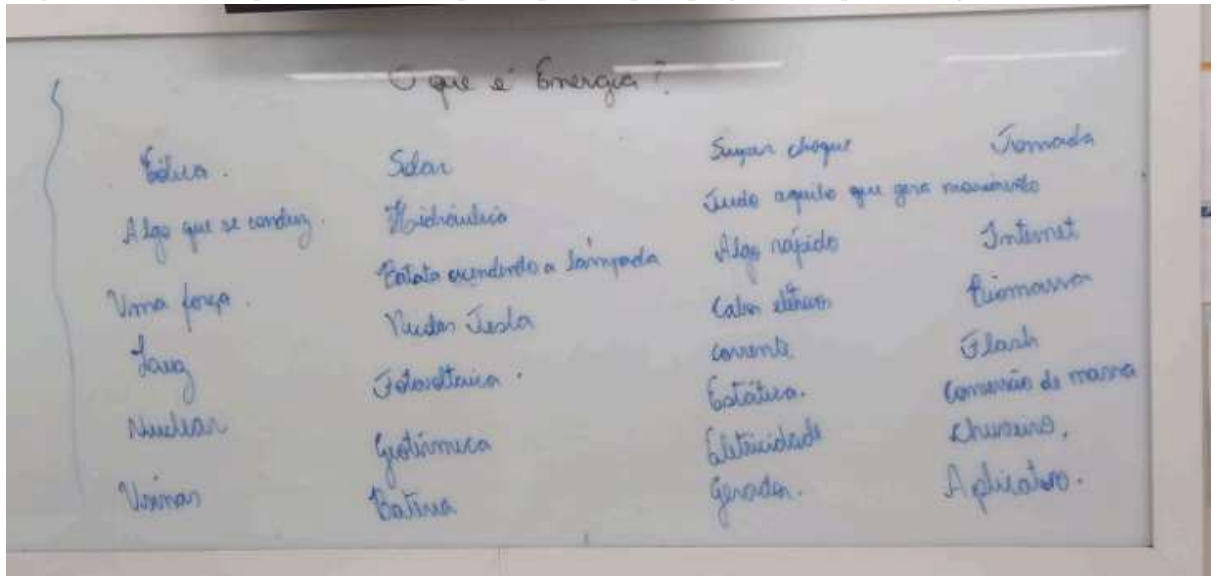 O que é Energia?
Eólica.
Algo que se conduz.
Uma força.
Nuclear
Usinas
Solar
Hidráulica
Batata acendendo a lâmpada
Tesla
Fotovoltaica.
Geotérmica
Bateria
choque
Tudo aquilo que gera movimento
Algo rápido
Cabos elétricos
corrente
Estática.
Eletricidade
Gerador.
Tomada
Internet
Biomassa
Flash
Conversão de massa
Chuveiro.
Aplicativo.